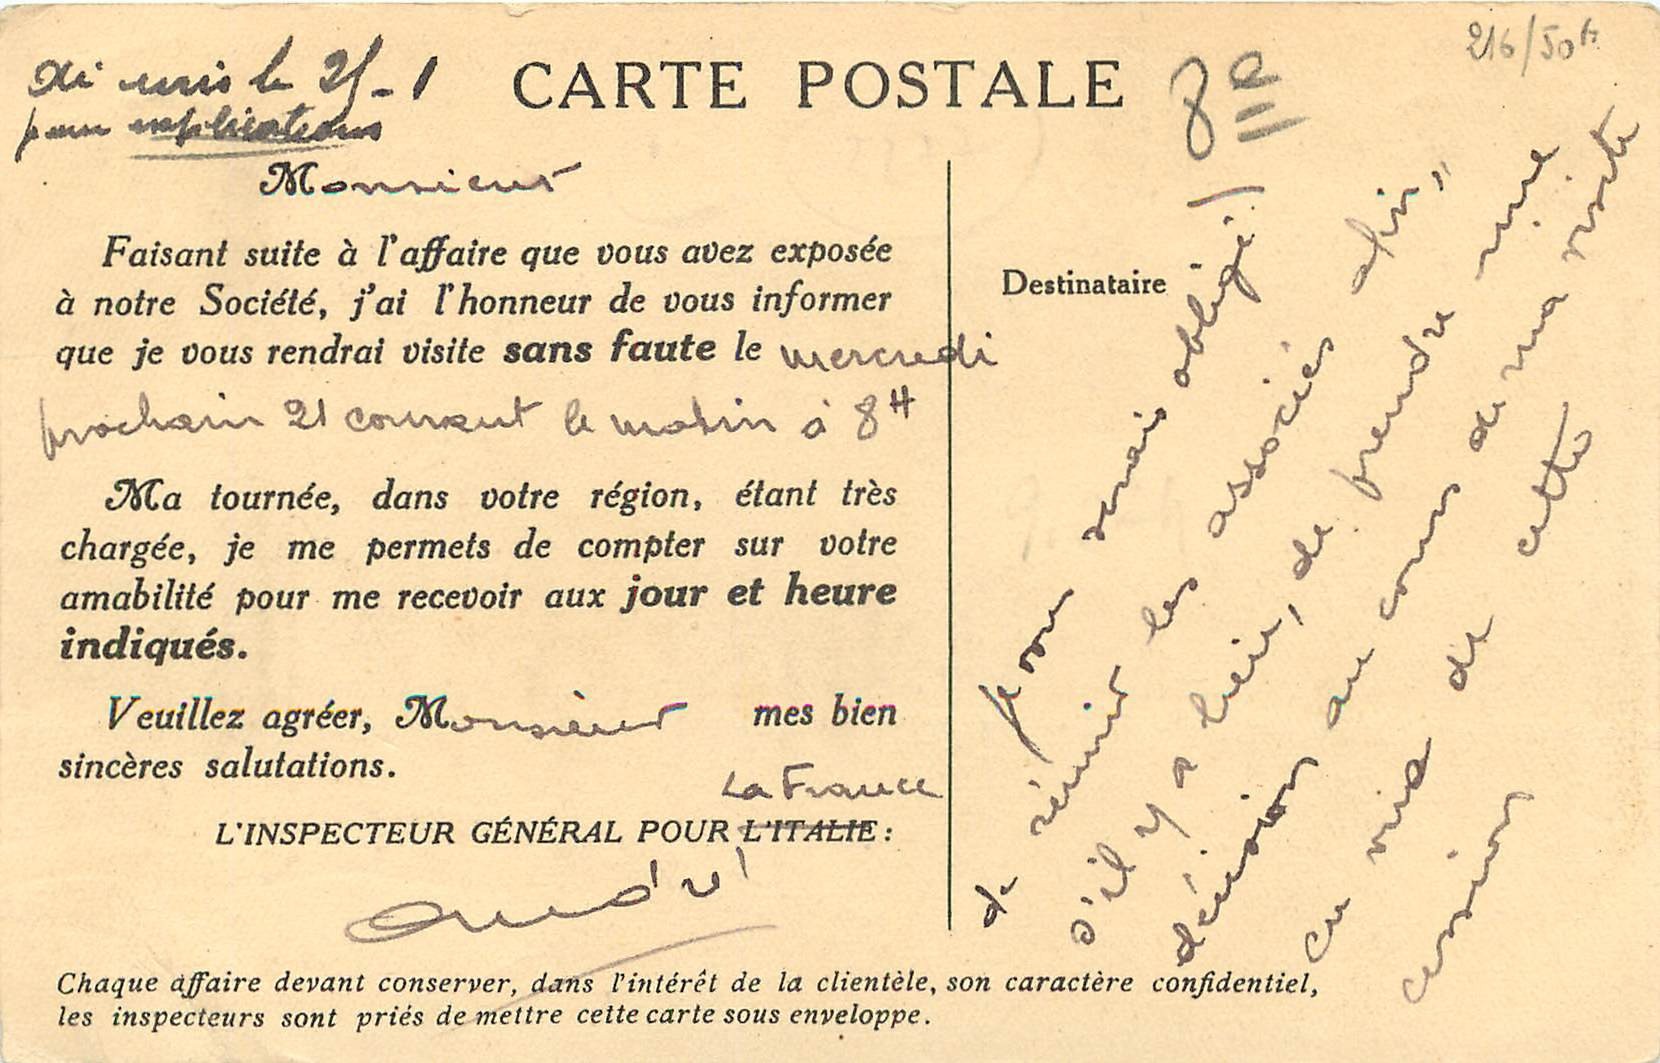 216/50
le 25-1
CARTE POSTALE
pour explications
Monsieur
Faisant suite à l'affaire que vous avez exposée
à notre Société, j'ai l'honneur de vous informer
que je vous rendrai visite sans faute le mercredi
prochain 21 courant le matin à 8H
Ma tournée, dans votre région, étant très
chargée, je me permets de compter sur votre
amabilité pour me recevoir aux jour et heure
indiqués.
Veuillez agréer, Monsieur mes bien
sincères salutations.
La France
L'INSPECTEUR GÉNÉRAL POUR L'ITALIE :
Chaque affaire devant conserver, dans l'intérêt de la clientèle, son caractère confidentiel,
les inspecteurs sont priés de mettre cette carte sous enveloppe.
Destinataire
Je vous serais obligé
de réunir les associés afin,
s'il y a lieu, de prendre une
décision au cours de ma visite
en vue de cette
cession